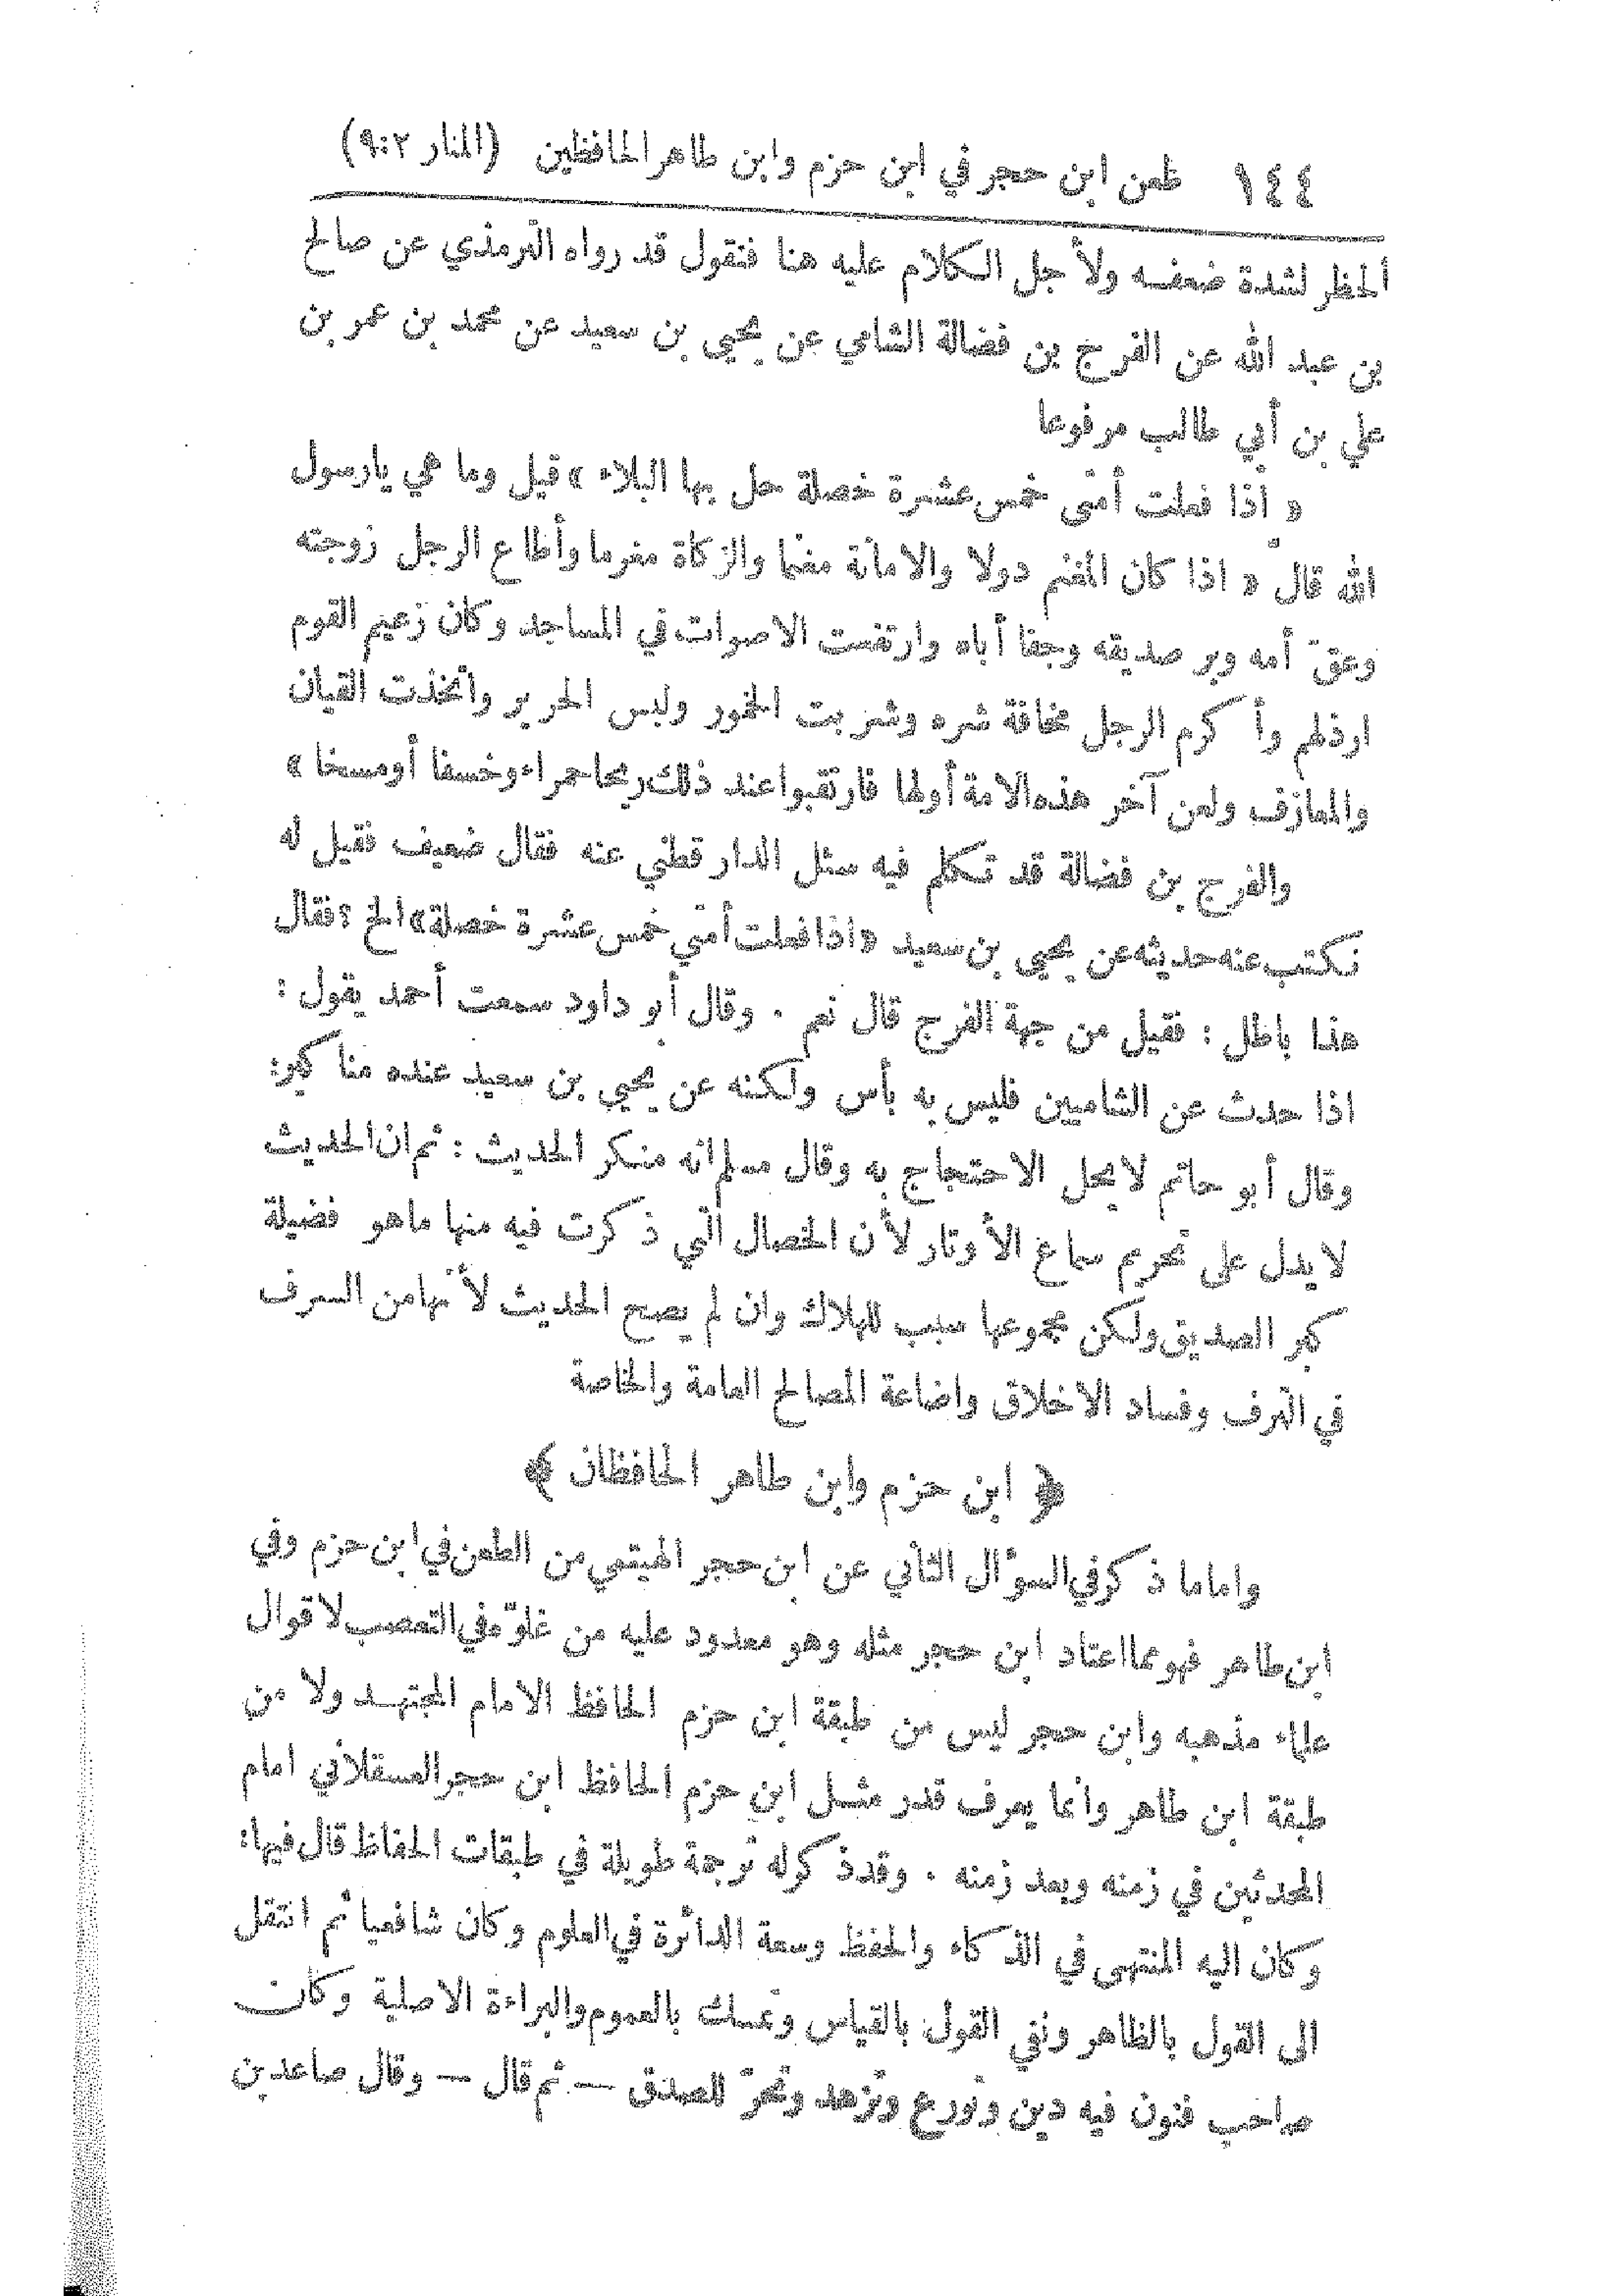 ١٤٤ طعن ابن حجر في ابن حزم وابن طاهر الحافظين (المنار ٩:٢)
الحظر لشدة ضعفه ولأجل الكلام عليه هنا فنقول قد رواه الترمذي عن صالح
بن عبد الله عن الفرج بن فضالة الشامي عن يحيى بن سعيد عن محمد بن عمر بن
علي بن أبي طالب مرفوعا
« اذا فعلت أمتي خمس عشرة خصلة حل بها البلاء » قيل وما هي يارسول
الله قال « اذا كان المغنم دولا والامانة مغنما والزكاة مغرما وأطاع الرجل زوجته
وعقّ أمه وبر صديقه وجفا أباه وارتفعت الاصوات في المساجد وكان زعيم القوم
ارذلهم وأكرم الرجل مخافة شره وشربت الخمور ولبس الحرير واتخذت القيان
والمعازف ولعن آخر هذه الامة أولها فارتقبوا عند ذلك ريحا حمراء وخسفا أو مسخا »
والفرج بن فضالة قد تكلم فيه سئل الدارقطني عنه فقال ضعيف فقيل له
نكتب عنه حديثه عن يحيى بن سعيد «اذا فعلت أمتي خمس عشرة خصلة» الخ ؟ فقال
هذا باطل : فقيل من جهة الفرج قال نعم . وقال أبو داود سمعت أحمد يقول :
اذا حدث عن الشاميين فليس به بأس ولكنه عن يحيى بن سعيد عنده مناكير:
وقال أبو حاتم لا يحل الاحتجاج به وقال مسلم انه منكر الحديث : ثم ان الحديث
لا يدل على تحريم سماع الأوتار لأن الخصال التي ذكرت فيه منها ماهو فضيلة
كبر الصديق ولكن مجموعها سبب للهلاك وان لم يصح الحديث لأنها من السرف
في الترف وفساد الاخلاق واضاعة المصالح العامة والخاصة
﴿ ابن حزم وابن طاهر الحافظان ﴾
واما ما ذكر في السؤال الثاني عن ابن حجر الهيتمي من الطعن في ابن حزم وفي
ابن طاهر فهو مما اعتاد ابن حجر مثله وهو معدود عليه من غلوّه في التعصب لاقوال
علماء مذهبه وابن حجر ليس من طبقة ابن حزم الحافظ الامام المجتهد ولا من
طبقة ابن طاهر وانما يعرف قدر مثل ابن حزم الحافظ ابن حجر العسقلاني امام
المحدثين في زمنه وبعد زمنه . وقد ذكر له ترجمة طويلة في طبقات الحفاظ قال فيها:
وكان اليه المنتهى في الذكاء والحفظ وسعة الدائرة في العلوم وكان شافعيا ثم انتقل
الى القول بالظاهر ونفي القول بالقياس وتمسك بالعموم والبراءة الاصلية وكان
صاحب فنون فيه دين وتورع وتزهد وتحرّ للصدق — ثم قال — وقال صاعد بن